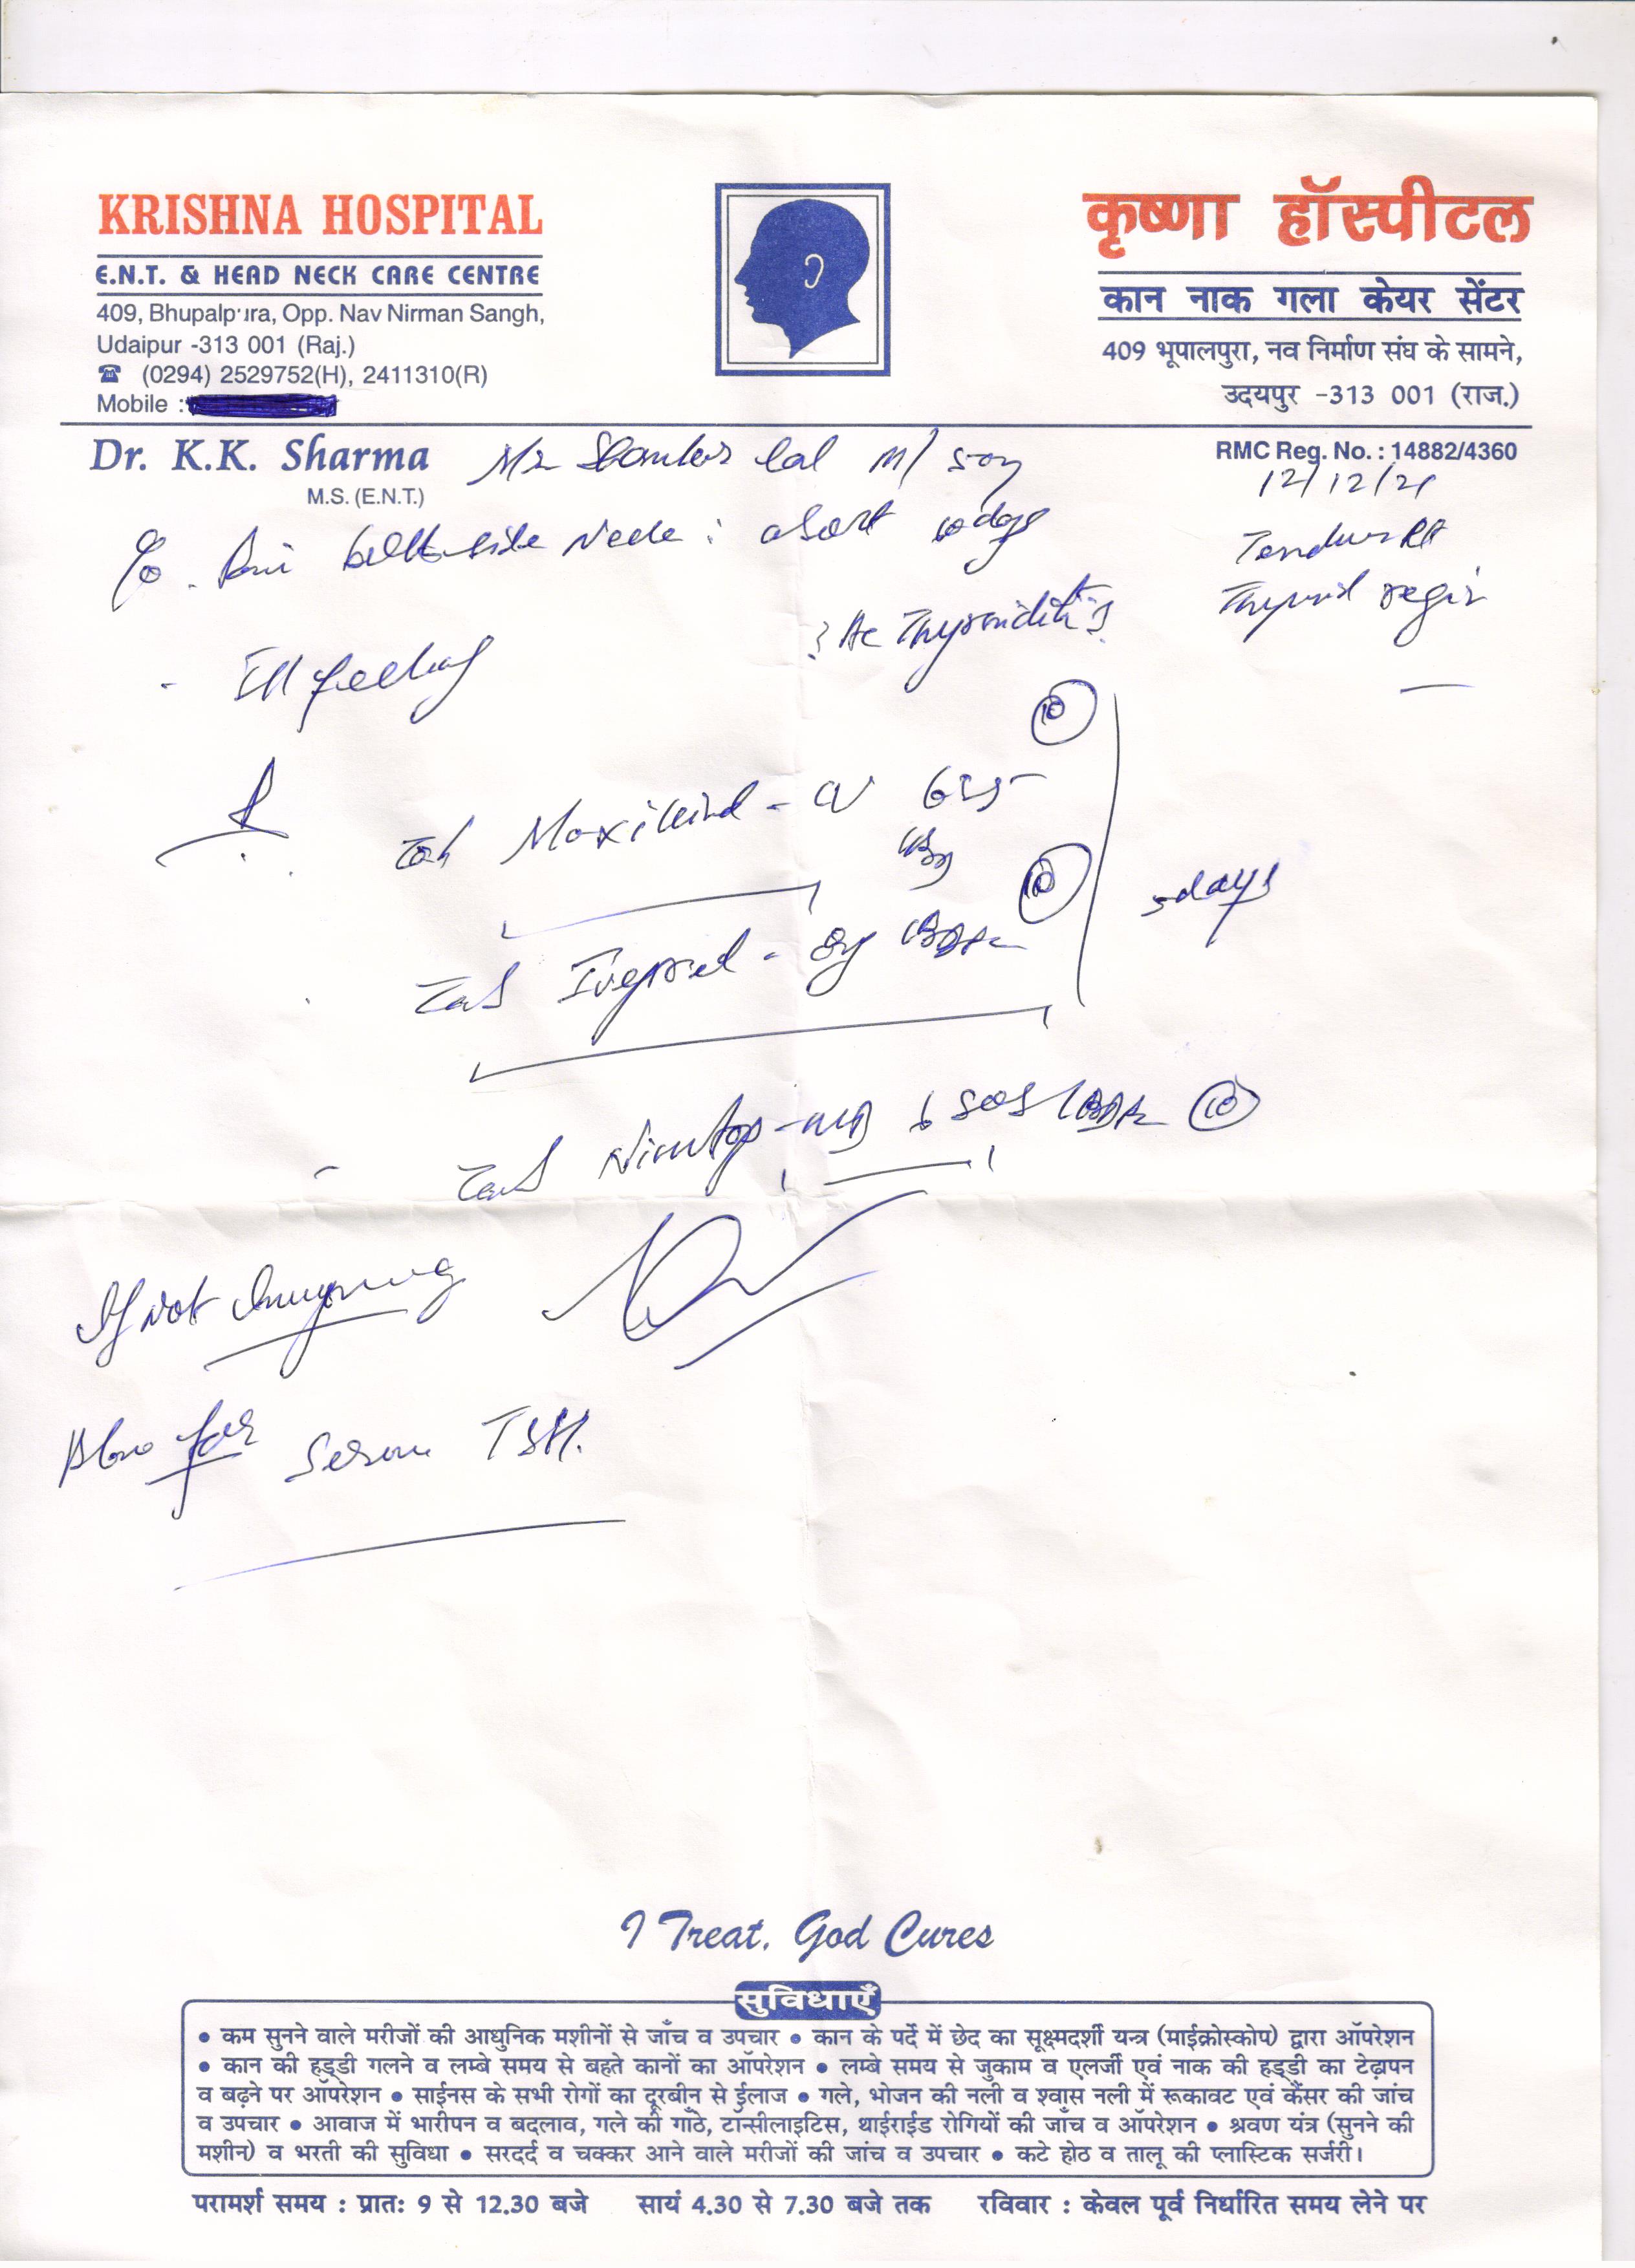 KRISHNA HOSPITAL
E.N.T. & HEAD NECK CARE CENTRE
409, Bhupalpura, Opp. Nav Nirman Sangh,
Udaipur -313 001 (Raj.)
☎ (0294) 2529752(H), 2411310(R)
Mobile :
कृष्णा हॉस्पीटल
कान नाक गला केयर सेंटर
409 भूपालपुरा, नव निर्माण संघ के सामने,
उदयपुर -313 001 (राज.)
Dr. K.K. Sharma
M.S. (E.N.T.)
RMC Reg. No. : 14882/4360
Mr Shanker lal m/
12/12/21
C/o. side
Thyroid
? Ac Thyroiditis?
- Ill feeling
10
Tab Moxikind - CV 625
10
5 days
Tab - 8mg
Tab SOS 10
If not
for Serum TSH.
I Treat. God Cures
सुविधाएँ
• कम सुनने वाले मरीजों की आधुनिक मशीनों से जाँच व उपचार • कान के पर्दे में छेद का सूक्ष्मदर्शी यन्त्र (माईक्रोस्कोप) द्वारा ऑपरेशन
• कान की हड्डी गलने व लम्बे समय से बहते कानों का ऑपरेशन • लम्बे समय से जुकाम व एलर्जी एवं नाक की हड्डी का टेढ़ापन
व बढ़ने पर ऑपरेशन • साईनस के सभी रोगों का दूरबीन से ईलाज • गले, भोजन की नली व श्वास नली में रूकावट एवं कैंसर की जांच
व उपचार • आवाज में भारीपन व बदलाव, गले की गाँठे, टॉन्सीलाइटिस, थाईराईड रोगियों की जाँच व ऑपरेशन • श्रवण यंत्र (सुनने की
मशीन) व भरती की सुविधा • सरदर्द व चक्कर आने वाले मरीजों की जांच व उपचार • कटे होठ व तालू की प्लास्टिक सर्जरी।
परामर्श समय : प्रातः 9 से 12.30 बजे सायं 4.30 से 7.30 बजे तक रविवार : केवल पूर्व निर्धारित समय लेने पर